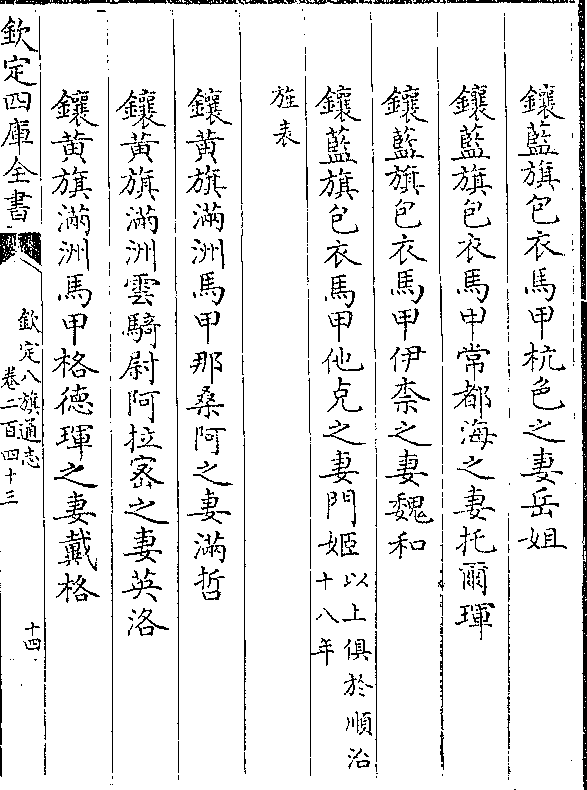 鑲藍旗包衣馬甲杭色之妻岳姐
鑲藍旗包衣馬甲常都海之妻托爾琿
鑲藍旗包衣馬甲伊柰之妻魏和
鑲藍旗包衣馬甲他克之妻門姬以上俱於順治十八年
旌表
鑲黃旗滿洲馬甲那桑阿之妻滿哲
鑲黃旗滿洲雲騎尉阿拉宻之妻英洛
鑲黃旗滿洲馬甲格德琿之妻戴格
欽定四庫全書
欽定八旗通志
卷二百四十三
十四